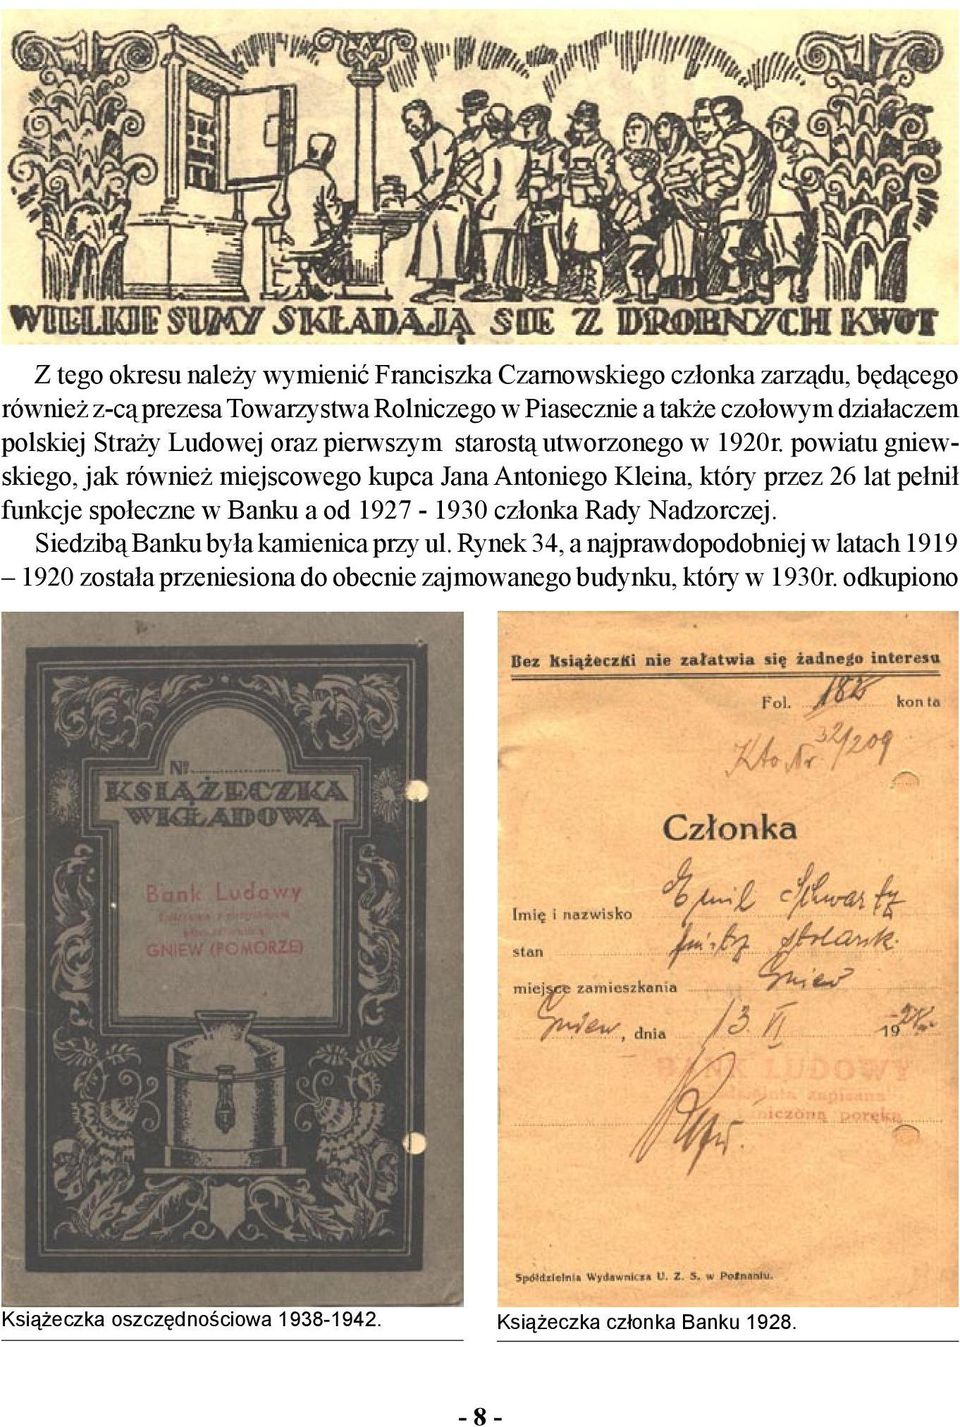 WIELKIE SUMY SKŁADAJĄ SIĘ Z DROBNYCH KWOT
Z tego okresu należy wymienić Franciszka Czarnowskiego członka zarządu, będącego
również z-cą prezesa Towarzystwa Rolniczego w Piasecznie a także czołowym działaczem
polskiej Straży Ludowej oraz pierwszym starostą utworzonego w 1920r. powiatu gniew-
skiego, jak również miejscowego kupca Jana Antoniego Kleina, który przez 26 lat pełnił
funkcje społeczne w Banku a od 1927 - 1930 członka Rady Nadzorczej.
Siedzibą Banku była kamienica przy ul. Rynek 34, a najprawdopodobniej w latach 1919
– 1920 została przeniesiona do obecnie zajmowanego budynku, który w 1930r. odkupiono
Nº
KSIĄŻECZKA
WKŁADOWA
Bank Ludowy
GNIEW (POMORZE)
Książeczka oszczędnościowa 1938-1942.
Bez książeczki nie załatwia się żadnego interesu
Fol. 182 konta
Kto Nr 32/209
Członka
Imię i nazwisko Emil Schwartz
stan mistrz stolarsk.
miejsce zamieszkania Gniew
Gniew, dnia 13 VI 1928
BANK LUDOWY
zapisana
poręką
Spółdzielnia Wydawnicza U. Z. S. w Poznaniu.
Książeczka członka Banku 1928.
- 8 -